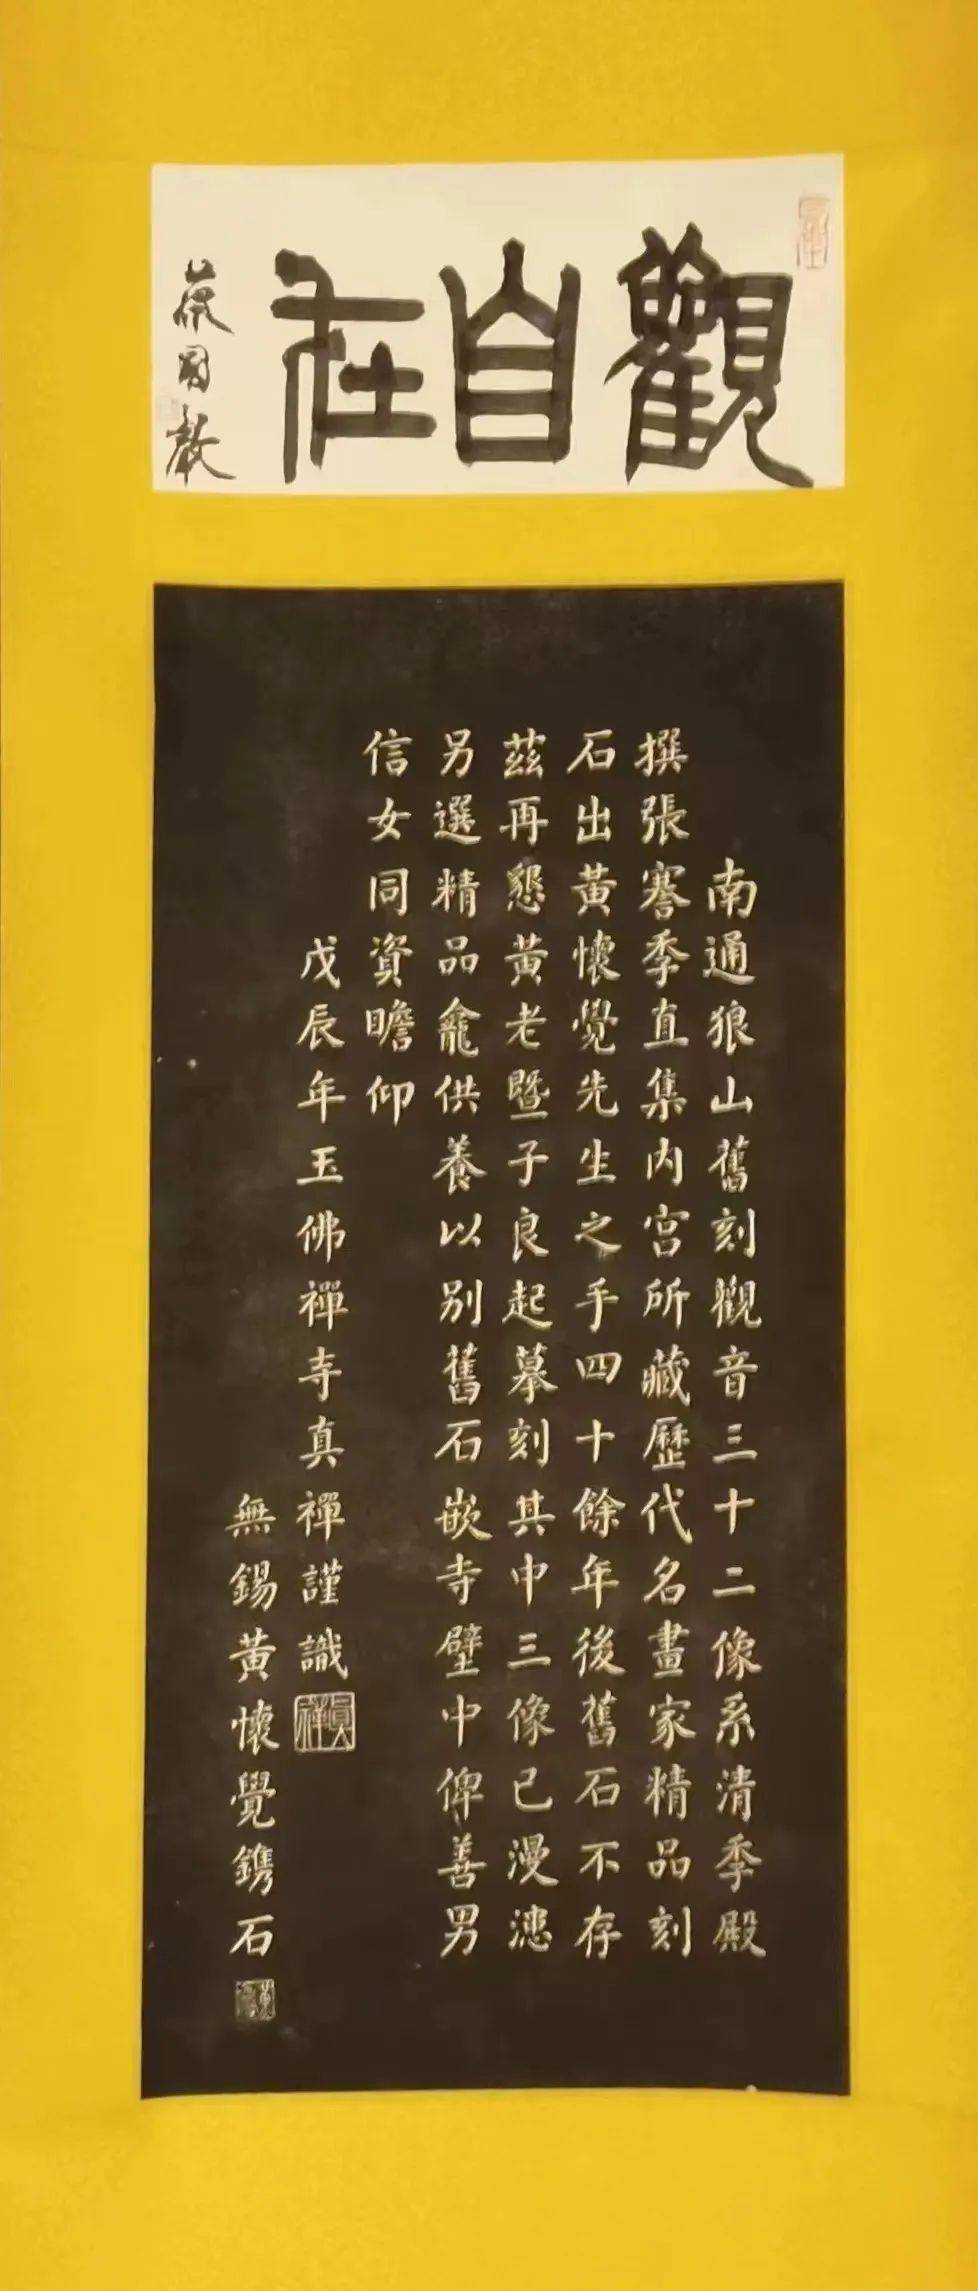 觀自在
蔡國聲
南通狼山舊刻觀音三十二像系清季殿
撰張謇季直集内宫所藏歷代名畫家精品刻
石出黃懷覺先生之手四十餘年後舊石不存
茲再懇黃老暨子良起摹刻其中三像已漫漶
另選精品龕供養以别舊石嵌寺壁中俾善男
信女同資瞻仰
戊辰年玉佛禪寺真禪謹識
真禪
無錫黃懷覺鐫石